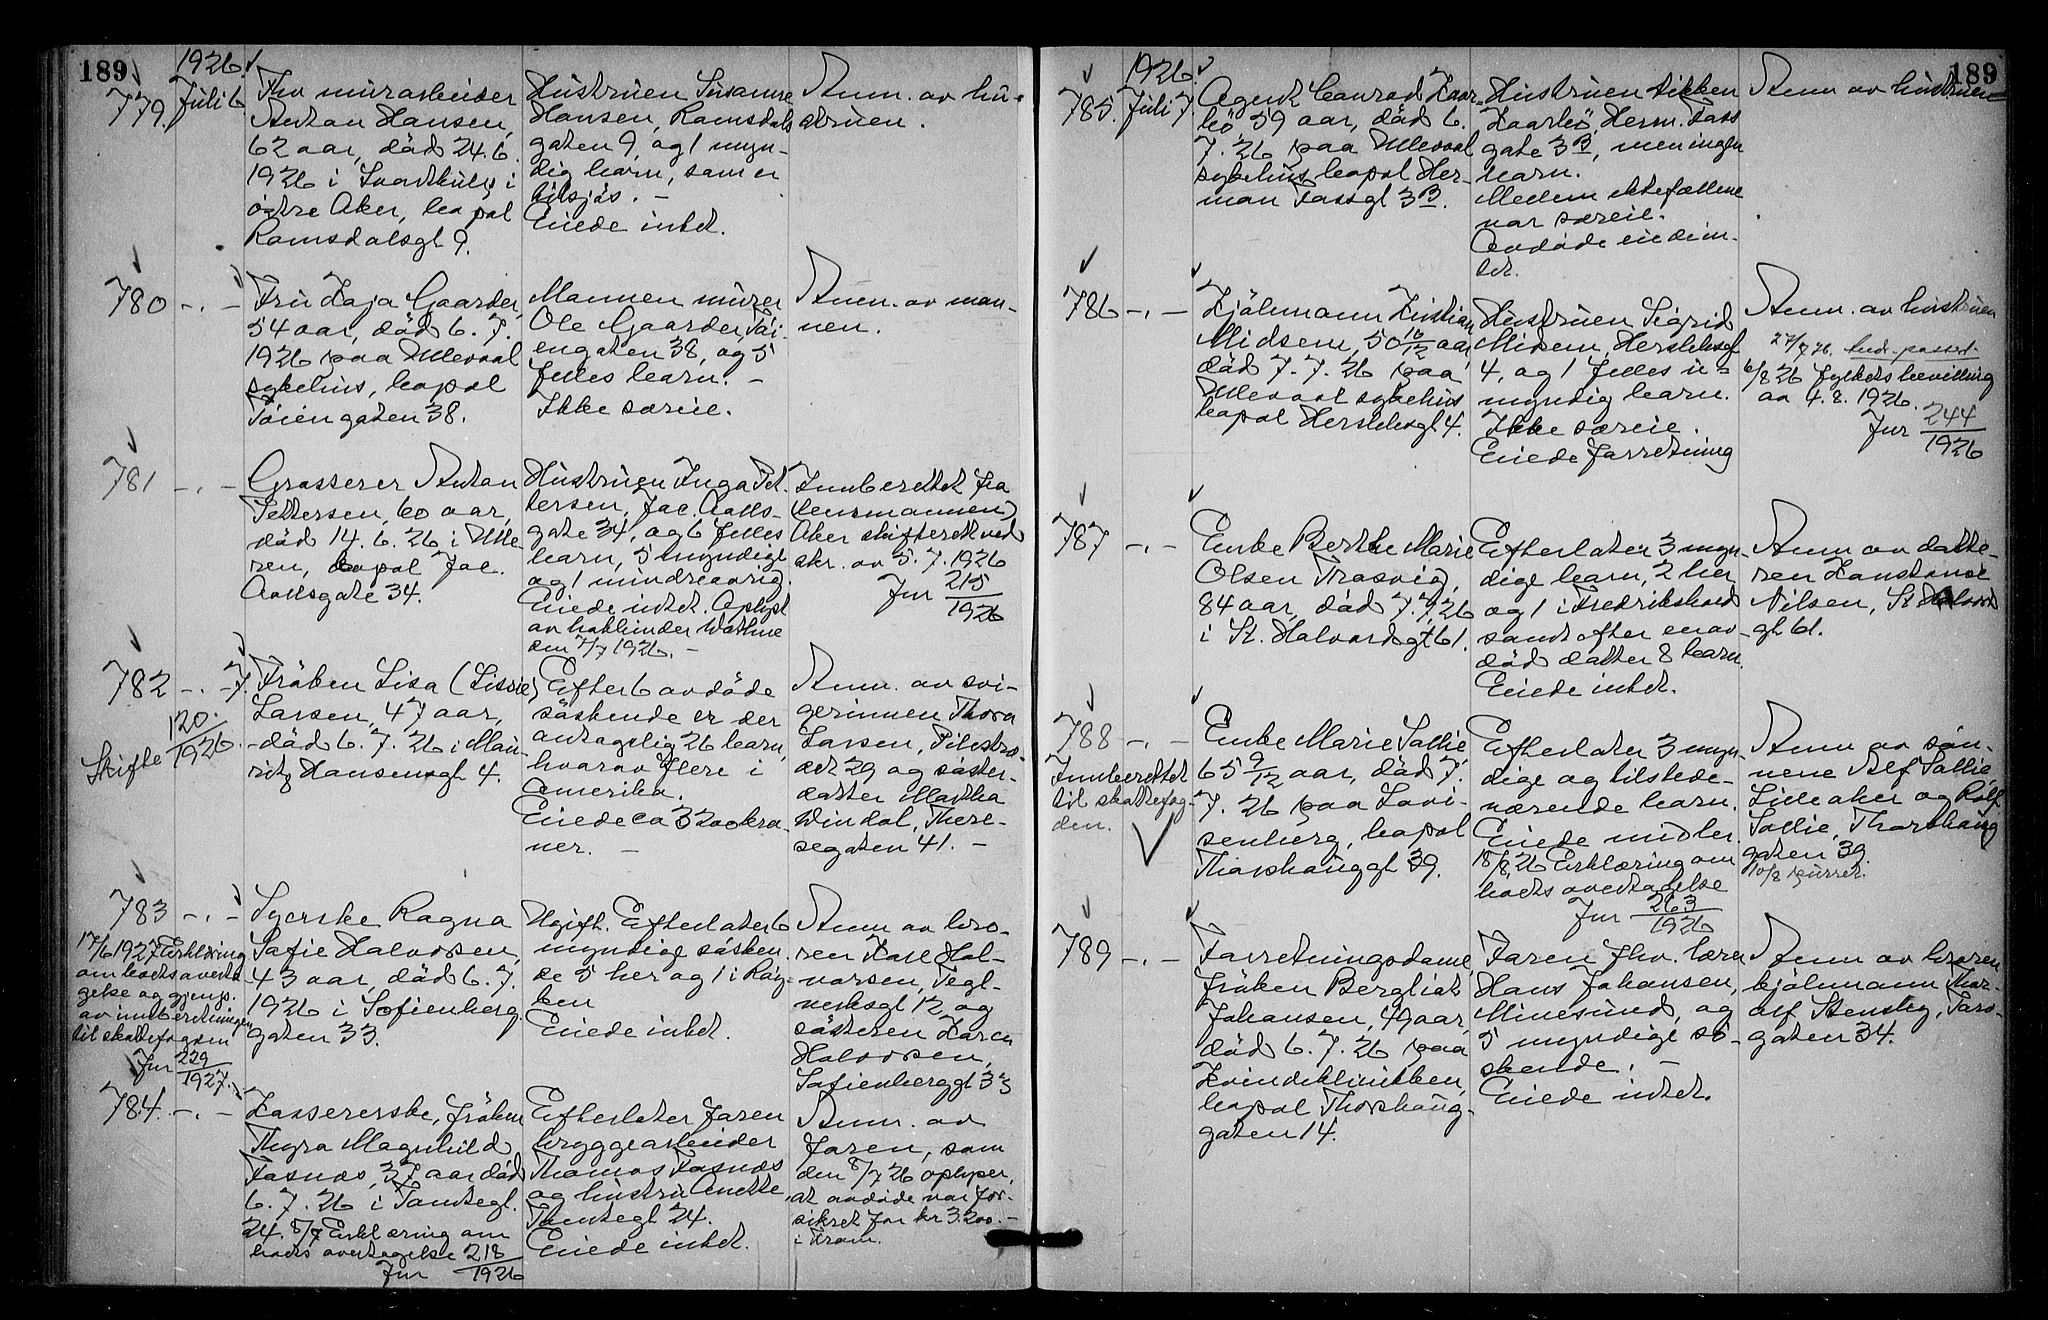 189
1926.
779. Juli 6.
Fhv murarbeider
Anton Hansen,
62 aar, død 24.6.
1926 i Svartkulp i
østre Aker, bopæl
Ramsdalsgt 9.
Hustruen Susanne
Hansen, Ramsdals
gaten 9, og 1 myn-
dig barn, som er
tilsjøs. -
Eiede intet.
Anm. av hu-
struen.
780 -.-
Fru Kaja Gaarder,
54 aar, død 6. 7.
1926 paa Ullevaal
sykehus, bopæl
Tøiengaten 38.
Mannen murer
Ole Gaarder, Tøi-
engaten 38, og 5
felles barn. -
Ikke særeie.
Anm. av man-
nen.
781 -.-
Grosserer Anton
Pettersen, 60 aar,
død 14. 6. 26 i Ulle-
ren, bopæl Jac.
Aallsgate 34.
Hustruen Inga Pet-
tersen, Jac. Aalls-
gate 34, og 6 felles
barn, 5 myndige
og 1 mindreaarig.
Eiede intet. Oplyst
av boblinder Wathne
den 7/7 1926. -
Innberettet fra
(lensmannen)
Aker skifterett ved
skr. av 5. 7. 1926
Jur 215
1926
782 -.- 7.
Skifte 120.
1926.
Frøken Lisa (Lissie)
Larsen, 47 aar,
død 6. 7. 26 i Mau-
ritz Hansensgt 4.
Efter 6 avdøde
søskende er der
antagelig 26 barn,
hvorav flere i
Amerika.
Eiede ca 3200 kro-
ner. -
Anm. av svi-
gerinnen Thora
Larsen, Pilestræ-
det 29 og søster-
datter Martha
Windal, There-
segaten 41. -
783 -.-
17/6 1927 Erklæring
om boets overta-
gelse og gjenp.
av innberetningen
til skattefogden
Jur 229
1927.
Syerske Ragna
Sofie Halvorsen,
43 aar, død 6. 7.
1926 i Sofienberg
gaten 33.
Ugift. Efterlater 6
myndige søsken-
de 5 her og 1 i Røy-
ken
Eiede intet.
Anm av bro-
ren Karl Hal-
vorsen, Tegl-
verksgt 12 og
søsteren Karen
Halvorsen,
Sofienberggt 33
784. -.-
Kassererske, frøken
Thyra Magnhild
Fosnæs, 37 aar død
6. 7. 26 i Tomtegt.
24. 8/7 Erklæring om
boets overtagelse 218
Jur 1926
Efterlater faren
bryggearbeider
Thomas Fosnæs
og hustru Anette,
Tomtegt 24.
Eiede intet.
Anm. av
faren, som
den 8/7 26 oplyser,
at avdøde var for-
sikret for kr 3200. -
i Fram.
189
1926.
785. Juli 7.
Agent Conrad Kaar-
bø, 59 aar, død 6.
7. 26 paa Ullevaal
sykehus bopæl Her-
man Fossgt 3B.
Hustruen Sikken
Kaarbø, Herm. Foss
gate 3B, men ingen
barn.
Mellem ektefællene
var særeie.
Avdøde eiedein-
tet.
Anm av hustruen
786 -.-
Kjøbmann Kristian
Midsem, 50 10/12 aar
død 7. 7. 26 paa
Ullevaal sykehus
bopæl Herslebsgt 4.
Hustruen Sigrid
Midsem, Herslebsgt
4, og 1 felles u-
myndig barn.
Ikke særeie.
Eiede forretning
Anm. av hustruen
27/7 26. Andr. passed.
6/8 26 Fylkets bevilling
av 4. 8. 1926.
Jur 244
1926
787 -.-
Enke Berthe Marie
Olsen Trosvig,
84 aar, død 7. 7. 26
i St. Halvardsgt 61.
Efterlater 3 myn-
dige barn, 2 her
og 1 i Fredrikstad
samt efter en av-
død datter 8 barn.
Eiede intet.
Anm av datte-
ren Konstanse
Nilsen, St Halvards
gt 61.
788 -.-
Innberettet
til skattefog-
den.
Enke Marie Sollie
65 9/12 aar, død 7.
7. 26 paa Lovi-
senberg, bopæl
Thorshauggt 39.
Efterlater 3 myn-
dige og tilstede-
værende barn.
Eiede midler
18/8 26 Erklæring om
boets overtagelse
Jur 263
1926
Anm av søn-
nene Alf Sollie,
Lilleaker og Rolf
Sollie, Thorshaug
gaten 39.
10/8 purret.
789 -.-
Forretningsdame
frøken Bergliot
Johansen, 49 aar,
død 6. 7. 26 paa
Kvindeklinikken,
bopæl Thorshaug-
gaten 14.
Faren fhv. lærer
Hans Johansen,
Minesund, og
5 myndige sø-
skende. -
Eiede intet.
Anm av broren
kjøbmann Thor-
olf Stensby, Fors-
gaten 34.